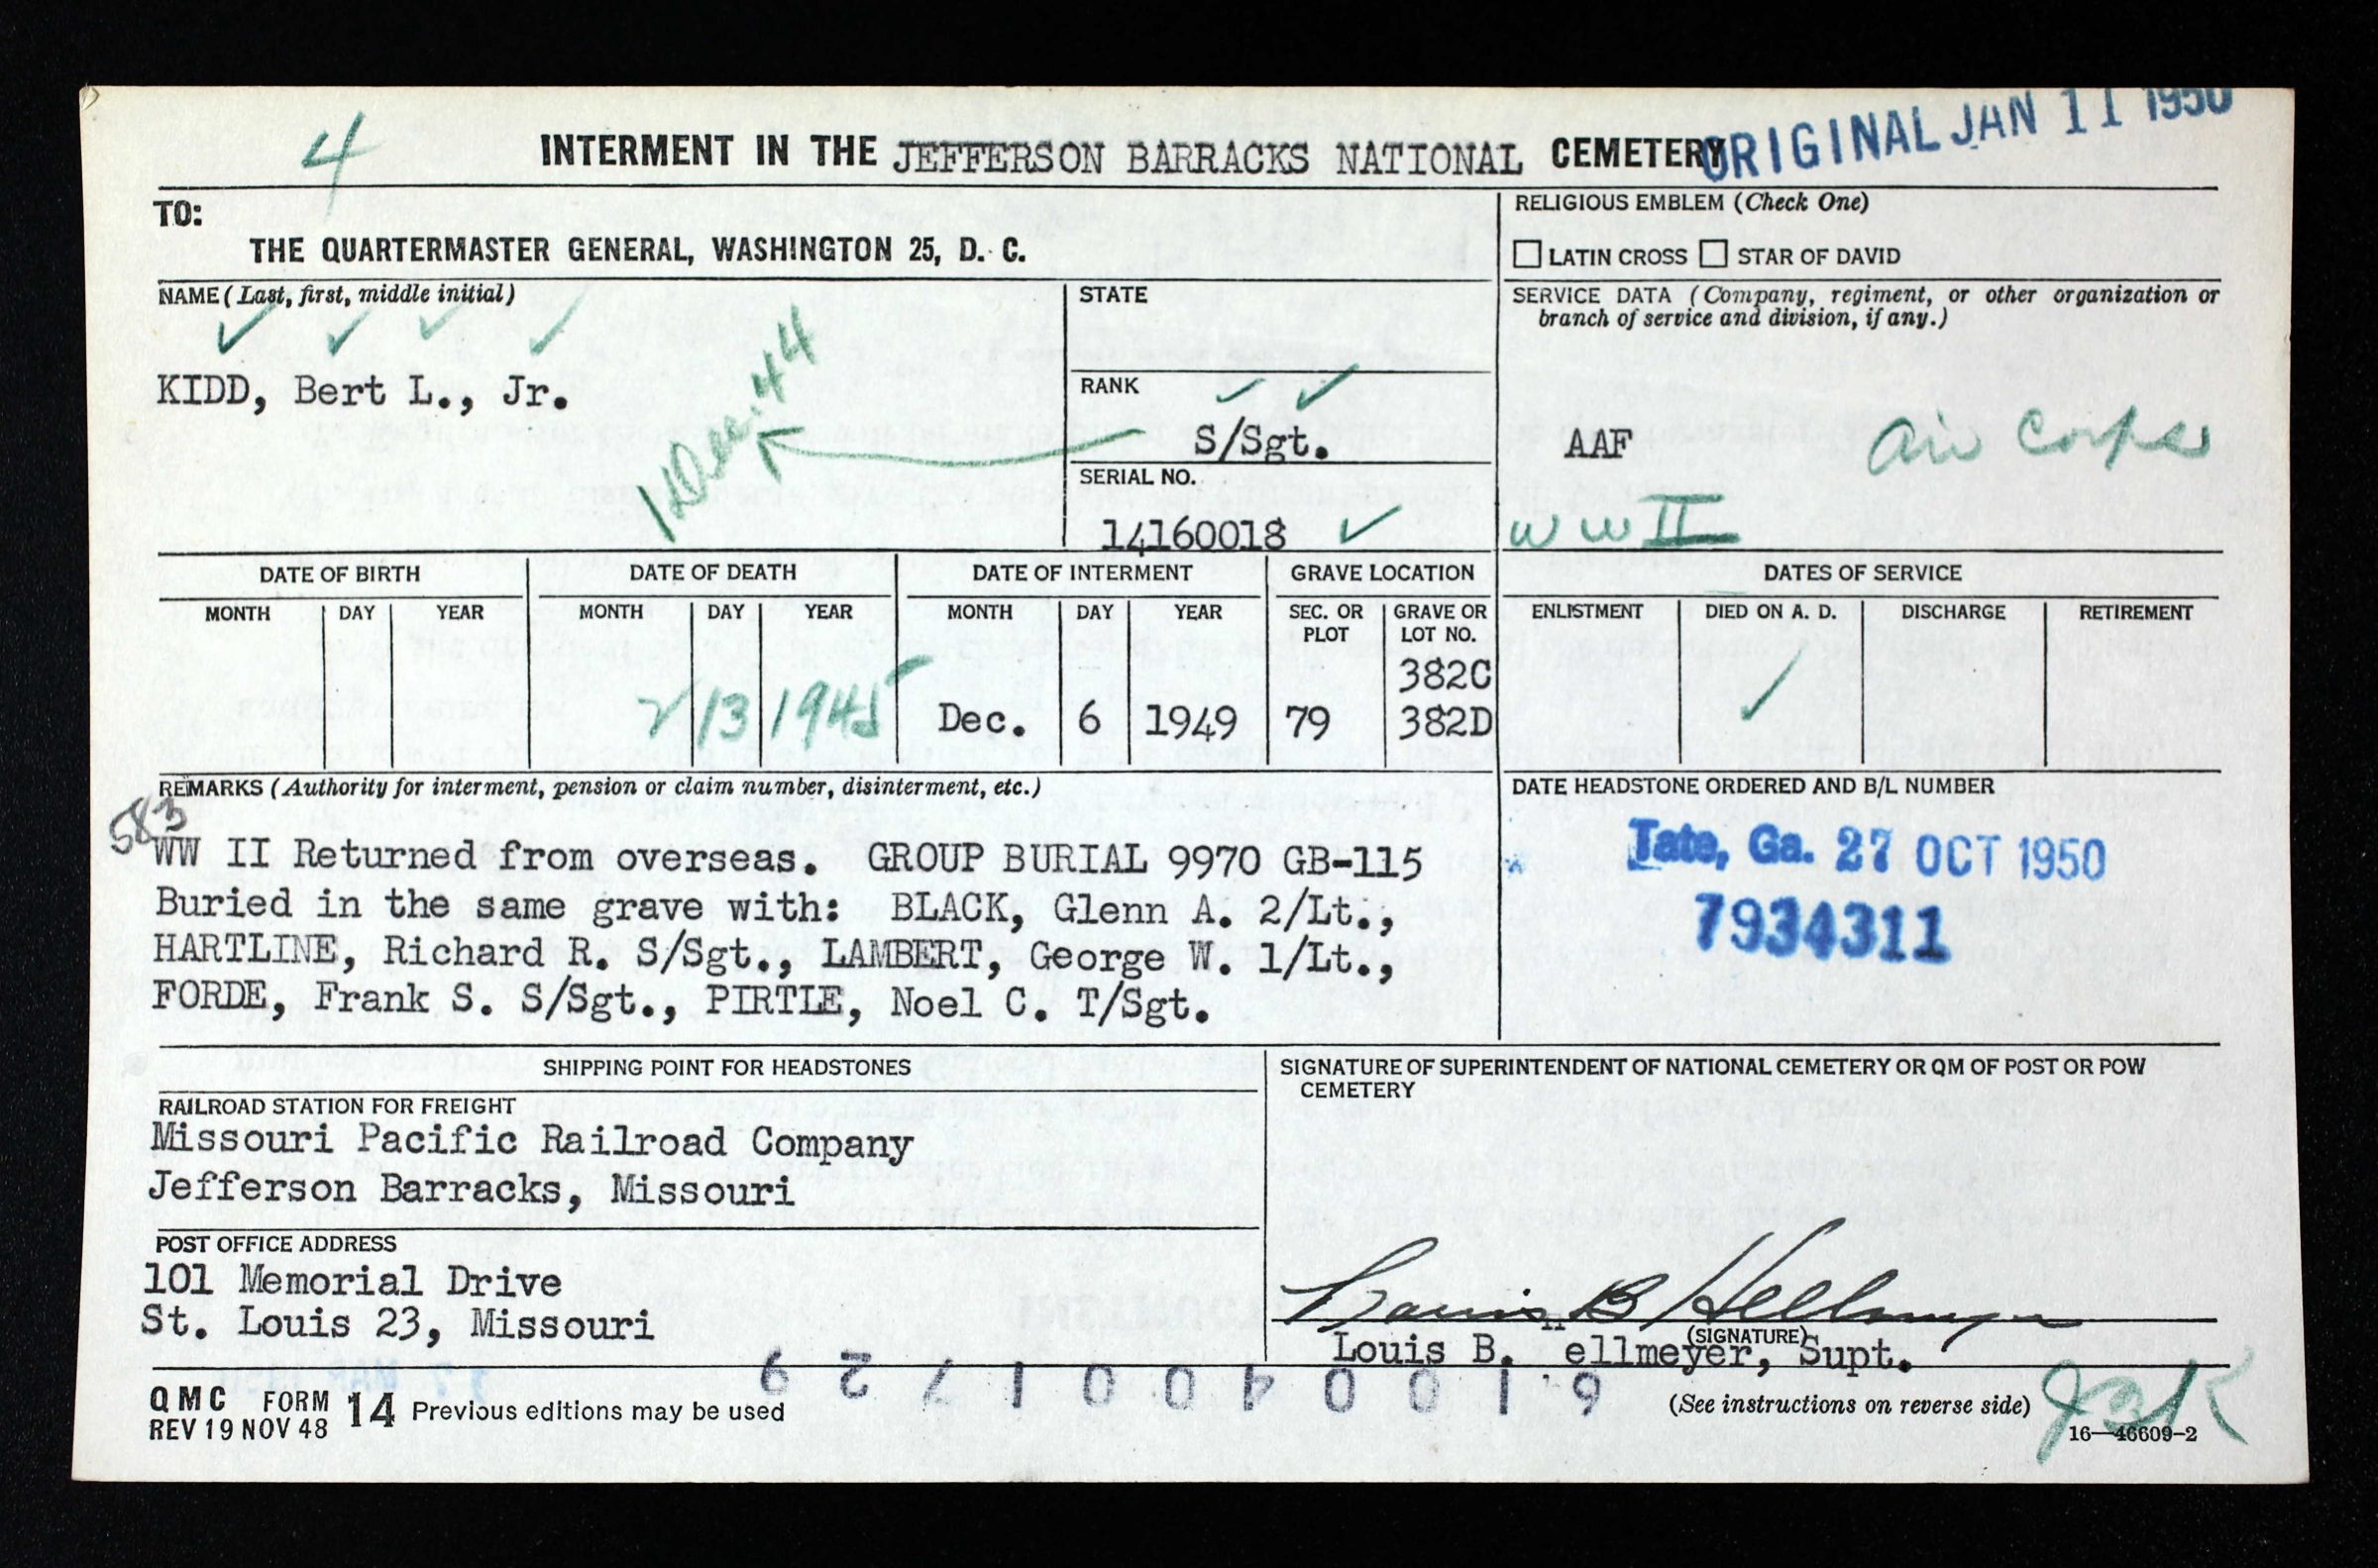 4
INTERMENT IN THE JEFFERSON BARRACKS NATIONAL CEMETERY
ORIGINAL JAN 11 1950
TO:
THE QUARTERMASTER GENERAL, WASHINGTON 25, D. C.
RELIGIOUS EMBLEM (Check One)
LATIN CROSS STAR OF DAVID
NAME (Last, first, middle initial)
KIDD, Bert L., Jr.
1 Dec. 44
STATE
RANK
S/Sgt.
SERIAL NO.
14160018
SERVICE DATA (Company, regiment, or other organization or
branch of service and division, if any.)
AAF Air Corps
WW II
DATE OF BIRTH DATE OF DEATH DATE OF INTERMENT GRAVE LOCATION DATES OF SERVICE
MONTH DAY YEAR MONTH DAY YEAR MONTH DAY YEAR SEC. OR PLOT GRAVE OR LOT NO. ENLISTMENT DIED ON A. D. DISCHARGE RETIREMENT
382C
2 13 1945 Dec. 6 1949 79 382D
REMARKS (Authority for interment, pension or claim number, disinterment, etc.)
583
WW II Returned from overseas. GROUP BURIAL 9970 GB-115
Buried in the same grave with: BLACK, Glenn A. 2/Lt.,
HARTLINE, Richard R. S/Sgt., LAMBERT, George W. 1/Lt.,
FORDE, Frank S. S/Sgt., PIRTLE, Noel C. T/Sgt.
DATE HEADSTONE ORDERED AND B/L NUMBER
Tate, Ga. 27 OCT 1950
7934311
SHIPPING POINT FOR HEADSTONES
RAILROAD STATION FOR FREIGHT
Missouri Pacific Railroad Company
Jefferson Barracks, Missouri
POST OFFICE ADDRESS
101 Memorial Drive
St. Louis 23, Missouri
SIGNATURE OF SUPERINTENDENT OF NATIONAL CEMETERY OR QM OF POST OR POW
CEMETERY
Louis B Hellmeyer
(SIGNATURE)
Louis B. ellmeyer, Supt.
QMC FORM 14 Previous editions may be used
REV 19 NOV 48
(See instructions on reverse side)
16—46609-2